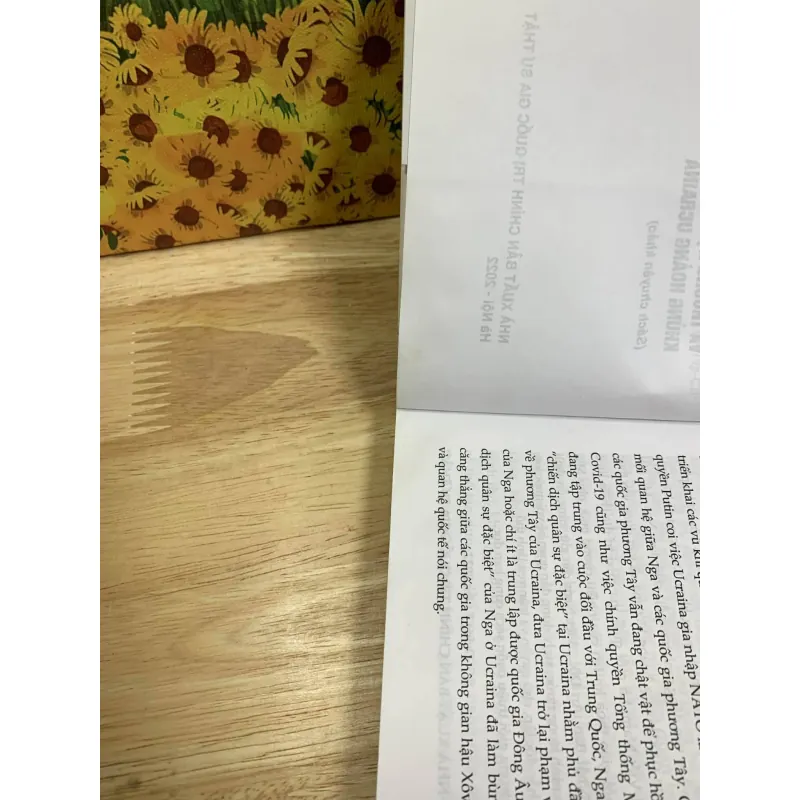 triển khai các vũ khí
quyền Putin coi việc Ucraina gia nhập NATO
mối quan hệ giữa Nga và các quốc gia phương Tây.
các quốc gia phương Tây vẫn đang chật vật để phục
Covid-19 cũng như việc chính quyền Tổng thống
đang tập trung vào cuộc đối đầu với Trung Quốc, Nga
“chiến dịch quân sự đặc biệt” tại Ucraina nhằm phủ
về phương Tây của Ucraina, đưa Ucraina trở lại phạm
của Nga hoặc chí ít là trung lập được quốc gia Đông Âu
dịch quân sự đặc biệt” của Nga ở Ucraina đã làm
căng thẳng giữa các quốc gia trong không gian hậu
và quan hệ quốc tế nói chung.
KHỦNG HOẢNG UCRAINA
(Sách chuyên khảo)
NHÀ XUẤT BẢN CHÍNH TRỊ QUỐC GIA SỰ THẬT
Hà Nội - 2022